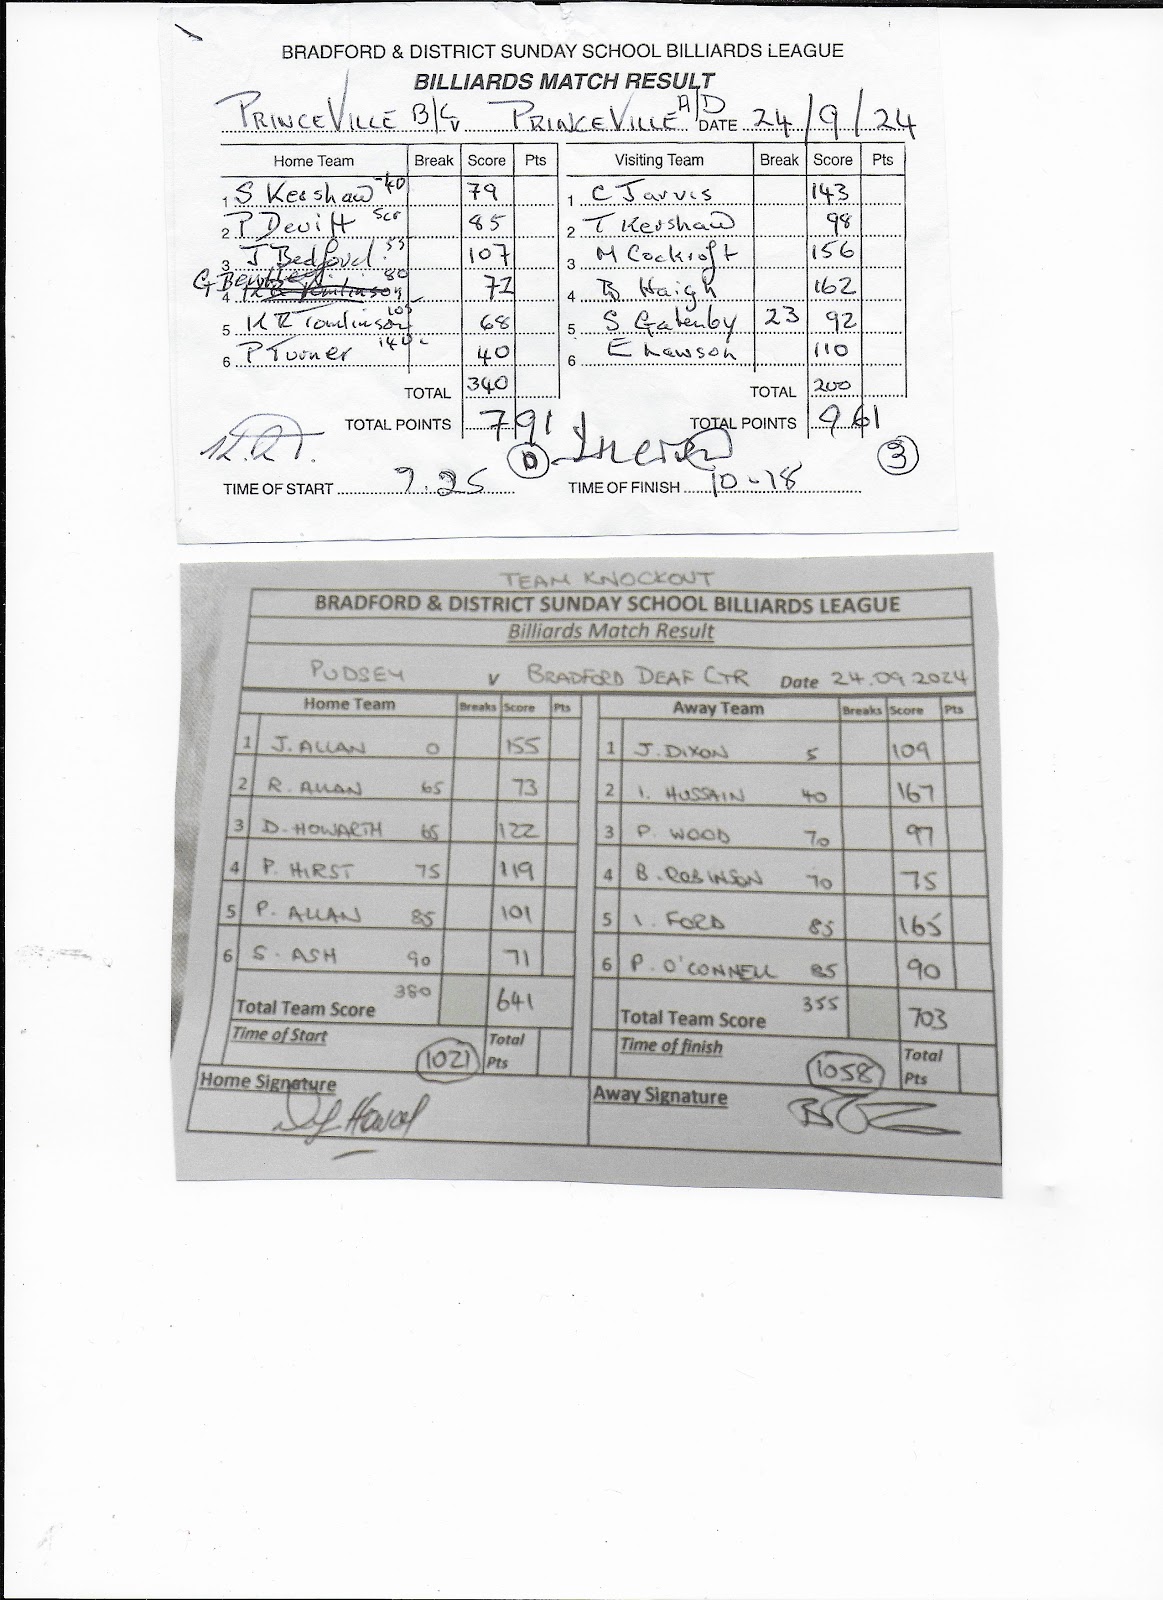 BRADFORD & DISTRICT SUNDAY SCHOOL BILLIARDS LEAGUE
BILLIARDS MATCH RESULT
PRINCEVILLE B/C v PRINCEVILLE A/D DATE 24/9/24
Home Team Break Score Pts Visiting Team Break Score Pts
1 S Kershaw -40 79 1 C Jarvis 143
2 P Devitt Scr 85 2 T Kershaw 98
3 J Bedford 107 3 M Cockroft 156
4 80 72 4 B Haigh 162
5 K R Tomlinson 105 68 5 S Gatenby 23 92
6 P Turner 140 40 6 E Lawson 110
TOTAL 340 TOTAL 200
TOTAL POINTS 791 TOTAL POINTS 961
K.R.T. 0 3
TIME OF START 7.25 TIME OF FINISH 10-18
TEAM KNOCKOUT
BRADFORD & DISTRICT SUNDAY SCHOOL BILLIARDS LEAGUE
Billiards Match Result
PUDSEY v BRADFORD DEAF CTR Date 24.09.2024
Home Team Breaks Score Pts Away Team Breaks Score Pts
1 J. ALLAN 0 155 1 J. DIXON 5 109
2 R. ALLAN 65 73 2 I. HUSSAIN 40 167
3 D. HOWARTH 65 122 3 P. WOOD 70 97
4 P. HIRST 75 119 4 B. ROBINSON 70 75
5 P. ALLAN 85 101 5 I. FORD 85 165
6 S. ASH 90 71 6 P. O'CONNELL 85 90
Total Team Score 380 641 Total Team Score 355 703
Time of Start 1021 Total Pts Time of finish 1058 Total Pts
Home Signature Away Signature